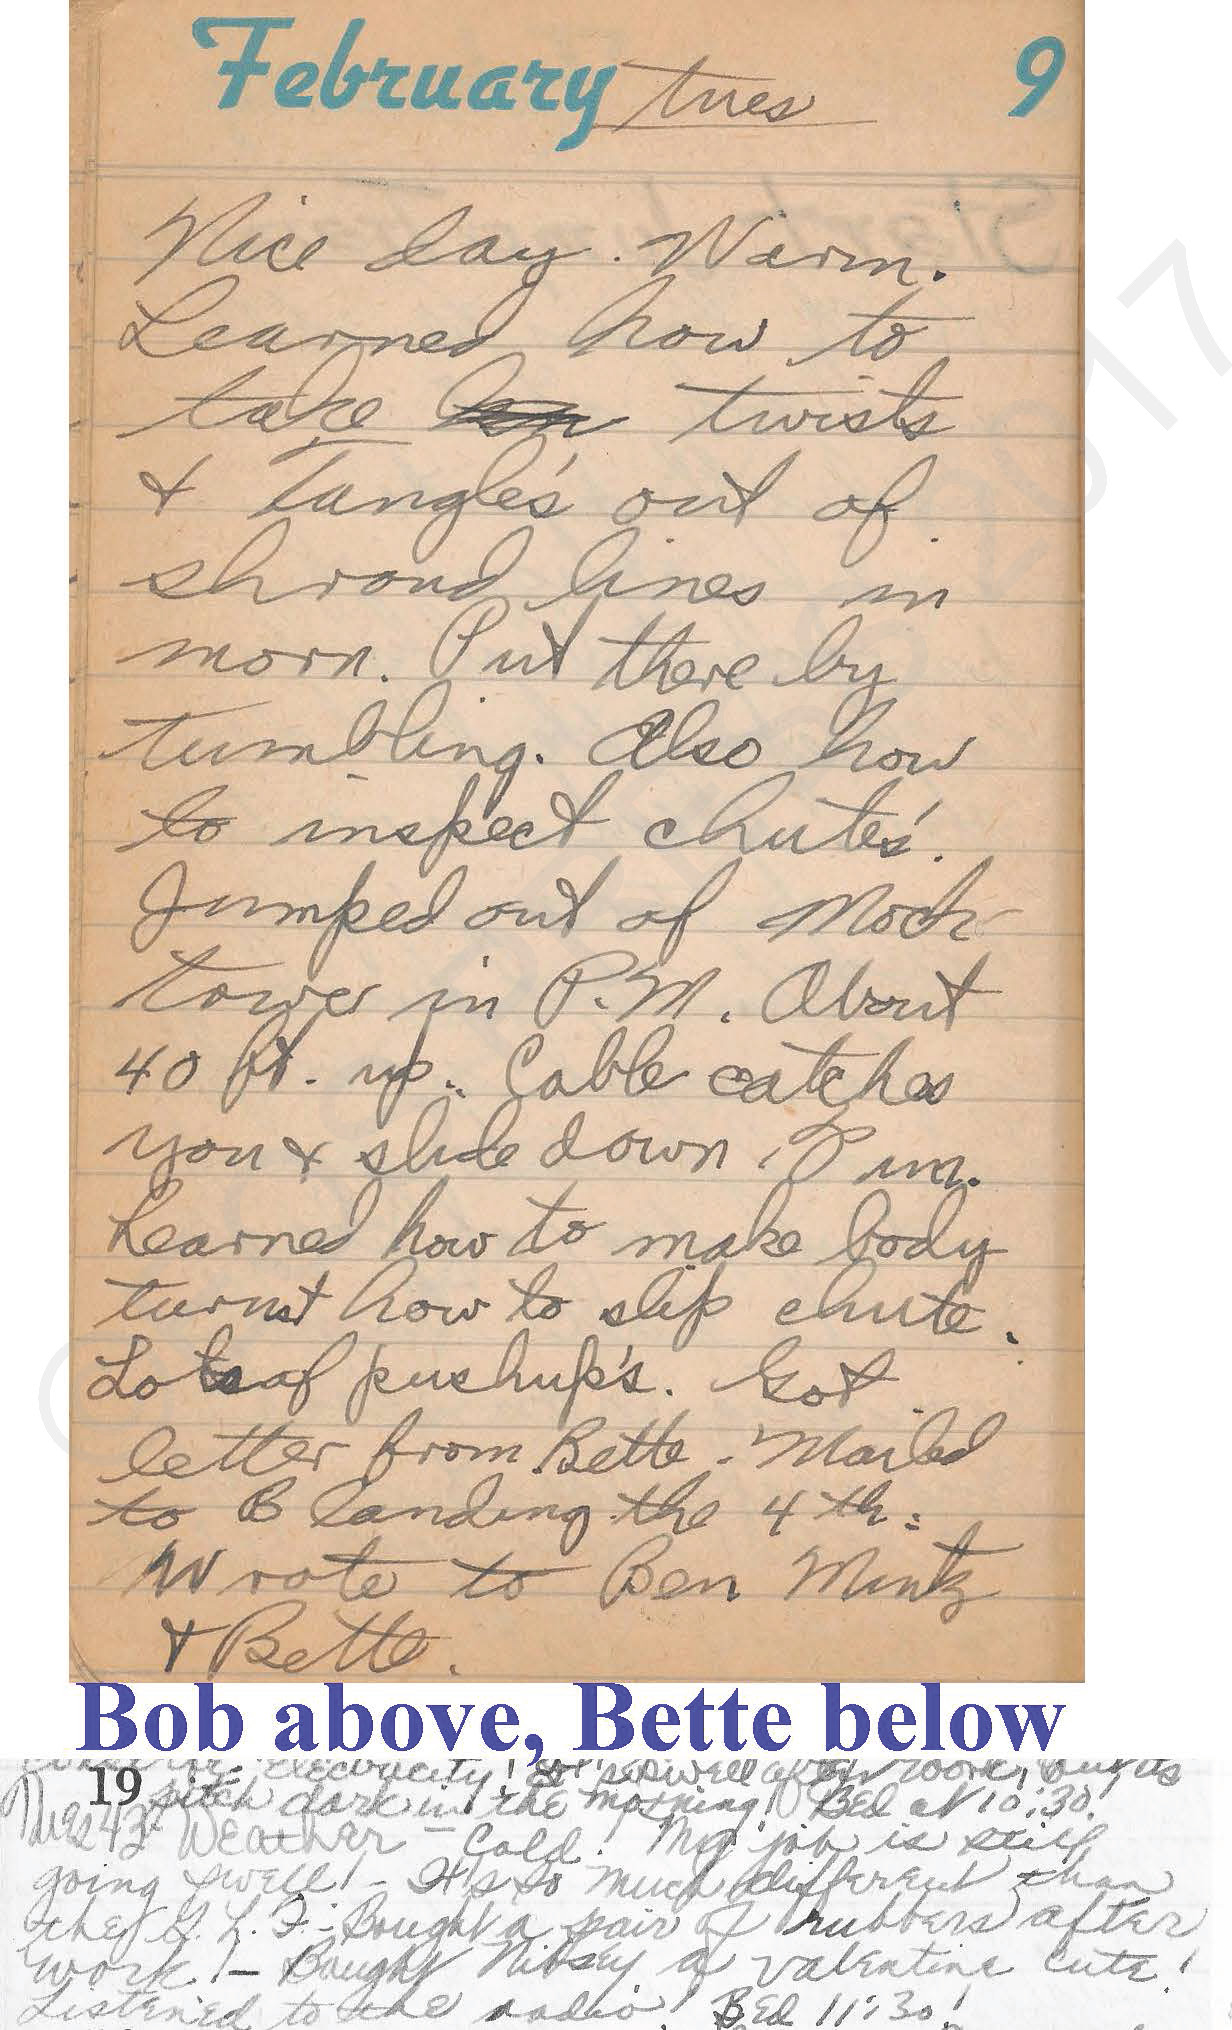 February tues 9
Nice day. Warm.
Learned how to
take twists
& Tangle's out of
shroud lines in
morn. Put there by
tumbling. Also how
to inspect chute's.
Jumped out of Mock
tower in P.M. About
40 ft. up. Cable catches
you & slide down.
Learned how to make body
turns & how to slip chute.
Lots of pushup's. Got
letter from Bette. Mailed
to Blanding the 4th.
Wrote to Ben Mintz
& Bette.
Bob above, Bette below
electricity! swell after work, but its
19 pitch dark in the morning! Bed at 10:30!
Tues 43 Weather – Cold! My job is still
going swell! – It's so much different than
the G. L. F. – Bought a pair of rubbers after
work! – Bought Nibsey a valentine cute!
Listened to the radio! Bed 11:30!
2017